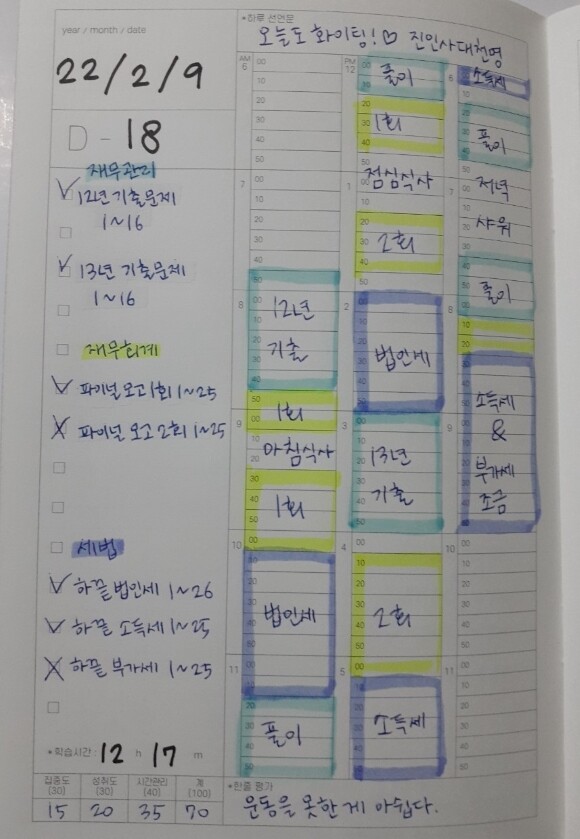 year / month / date
22/2/9
D - 18
재무관리
12년 기출문제
1~16
13년 기출문제
1~16
재무회계
파이널 모고 1회 1~25
파이널 모고 2회 1~25
세법
하끝 법인세 1~26
하끝 소득세 1~25
하끝 부가세 1~25
•학습시간: 12 h 17 m
집중도 (30) 성취도 (30) 시간관리 (40) 계 (100)
15 20 35 70
•하루 선언문
오늘도 화이팅!♡ 진인사대천명
AM
6
7
8
12년
기출
1회
9
아침식사
1회
10
법인세
11
풀이
PM
12
풀이
1회
1
점심식사
2회
2
법인세
3
13년
기출
4
2회
5
소득세
6
소득세
풀이
7
저녁
샤워
풀이
8
소득세
&
9
부가세
조금
10
11
•한줄 평가
운동을 못한 게 아쉽다.